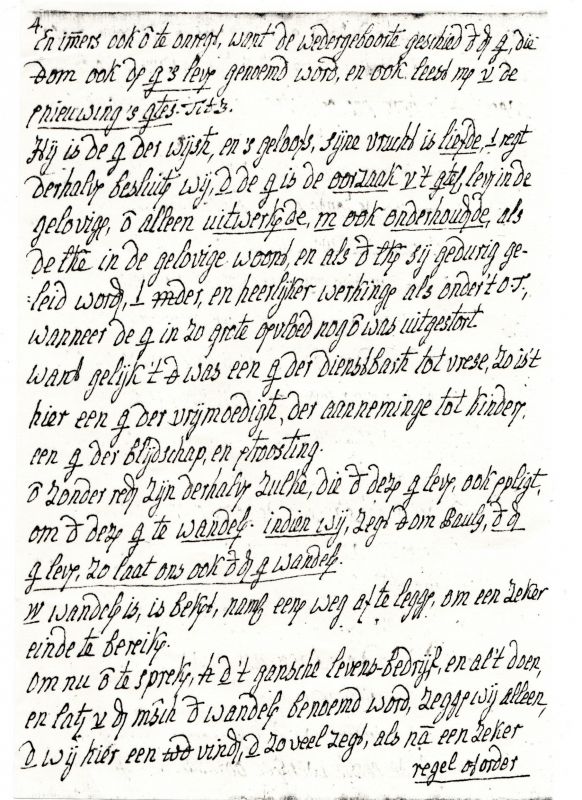 4.
En im̄ers ook ō te onregt, want de wedergeboorte geschied đ dȳ g, die
Đom ook de g's leve genoemd word, en ook leest me v̄ de
nieuwing's gtes. Tit 3.
Hij is de g der wijsh, en 's geloofs, sijne vrucht is liefde, regt
derhalve besluite wij, D de g is de oorzaak v 't gtes, leve in de
gelovige, ō alleen uitwerkede, m ook onderhoude, als
de the in de gelovige woond, en als đ the sij gedurig ge-
leid word, mder, en heerlijker werkinge als onder t O T,
wanneer de g in zo grote opvloed nog ō was uitgestort.
want gelijk 't đ was een g der dienstbarh tot vrese, zo is 't
hier een g der vrijmoedigh, der aanneminge tot kindere,
een g der blijdschap, en troosting.
ō zonder rede zijn derhalve zulke, die đ deze g leve, ook plijgt,
om đ deze g te wandele. indien wij, zegt Đom Paulg, đ dȳ
g leve, zo laat ons ook đ dȳ g wandele.
W wandele is, is beket, name eene weg af te legge, om een zeker
einde te bereike.
om nu ō te spreke, D 't gansche levens-bedrijf, en al 't doen,
en late v̄ dȳ msch đ wandele benoemd word, zegge wij alleen,
D wij hier een wd vinde, d zo veel zegt, als nā een zeker
regel of order